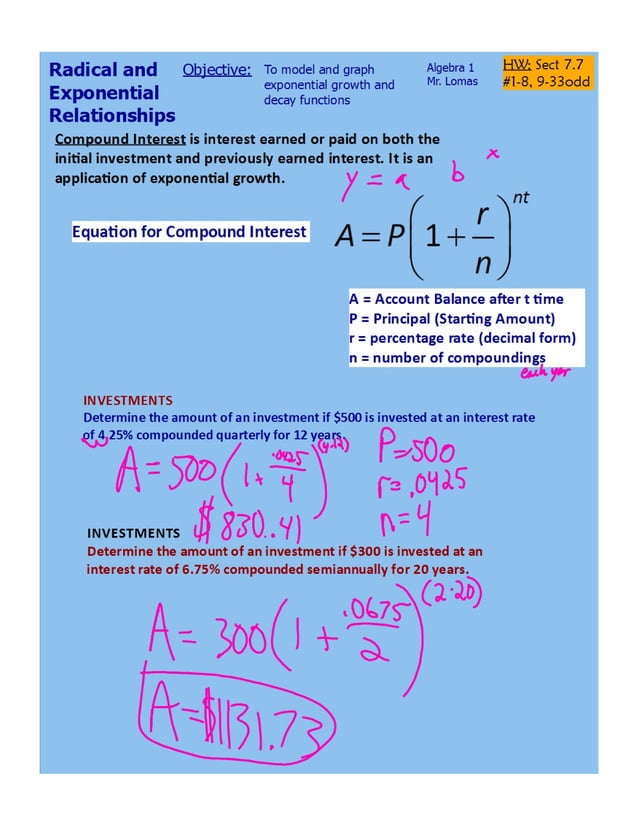 Radical and
Exponential
Relationships
Objective:
To model and graph
exponential growth and
decay functions
Algebra 1
Mr. Lomas
HW: Sect 7.7
#1-8, 9-33odd
Compound Interest is interest earned or paid on both the
initial investment and previously earned interest. It is an
application of exponential growth.
y = a b^x
Equation for Compound Interest
A = P(1 + r/n)^nt
A = Account Balance after t time
P = Principal (Starting Amount)
r = percentage rate (decimal form)
n = number of compoundings
each year
INVESTMENTS
Determine the amount of an investment if $500 is invested at an interest rate
of 4.25% compounded quarterly for 12 years.
A = 500(1 + .0425/4)^(4·12)
$830.41
P=500
r= .0425
n=4
INVESTMENTS
Determine the amount of an investment if $300 is invested at an
interest rate of 6.75% compounded semiannually for 20 years.
A = 300(1 + .0675/2)^(2·20)
A=$1131.73